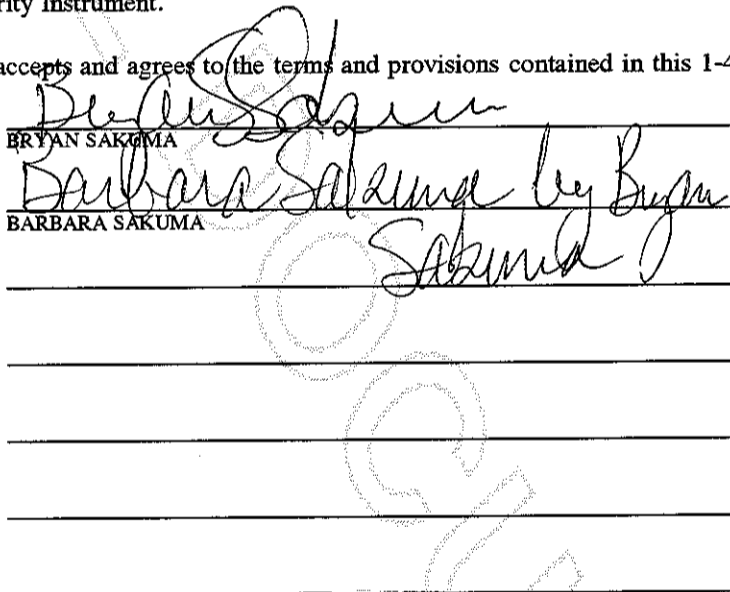 rity Instrument.
accepts and agrees to the terms and provisions contained in this 1-4
Bryan Sakuma
BRYAN SAKUMA
Barbara Sakuma by Bryan
BARBARA SAKUMA
Sakuma